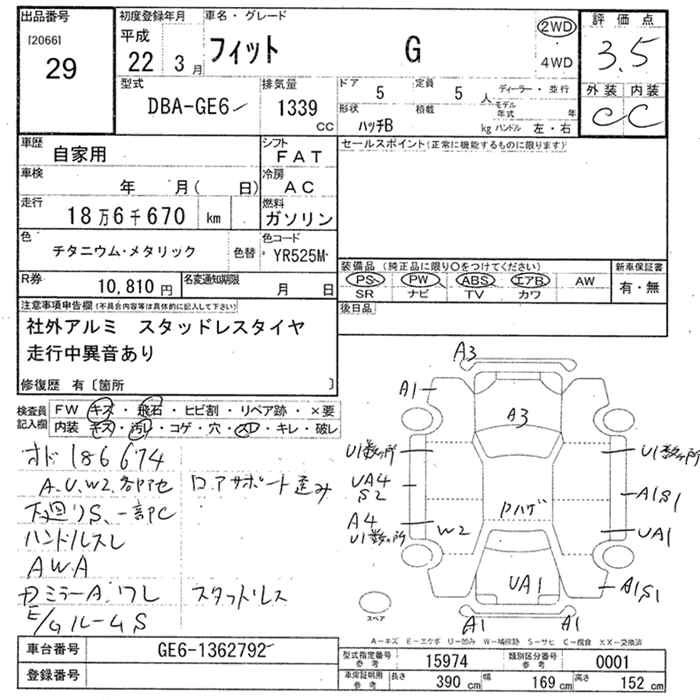 出品番号
[2066]
29
初度登録年月
平成
22 3月
車名・グレード
フィット G
2WD
・
4WD
評価点
3.5
外装 内装
C C
型式
DBA-GE6
排気量
1339
CC
ドア
5
定員
5 人
ディーラー・並行
形状
ハッチB
積載
kg
モデル年式 年
ハンドル 左・右
車歴
自家用
シフト
FAT
車検
年 月( 日)
冷房
AC
走行
18万6千670 km
燃料
ガソリン
色
チタニウム・メタリック
色替
色コード
YR525M
R券
10,810円
名変通知期限
月 日
セールスポイント(正常に機能するものに限ります)
装備品 (純正品に限り○をつけてください)
PS・ PW ・ ABS ・ エアB ・ AW
SR ナビ TV カワ
新車保証書
有・無
後日品
注意事項申告欄 (不具合内容等は具体的に記入して下さい)
社外アルミ スタッドレスタイヤ
走行中異音あり
修復歴 有〔箇所 〕
検査員
記入欄
FW キズ・飛石・ヒビ割・リペア跡・×要
内装 キズ・汚レ・コゲ・穴・スレ・キレ・破レ
オド 186674
A.U.W2.各所他
ロアサポート歪み
下廻りS、一部C
ハンドルスレ
AWA
ミラーA.ワレ
スタットレス
E/gルームS
A3
A1
A3
U1数ヶ所
U1数ヶ所
UA4
S2
A4
U1数ヶ所
W2
Pハゲ
A1S1
UA1
UA1
A1S1
A1
A1
スペア
A-キズ E-エクボ U-凹み W-補修跡 S-サビ C-腐食 XX-交換済
車台番号
GE6-1362792
登録番号
型式指定番号
参考
15974
類別区分番号
参考
0001
車庫証明用
参考
長さ
390 cm
幅
169 cm
高さ
152 cm